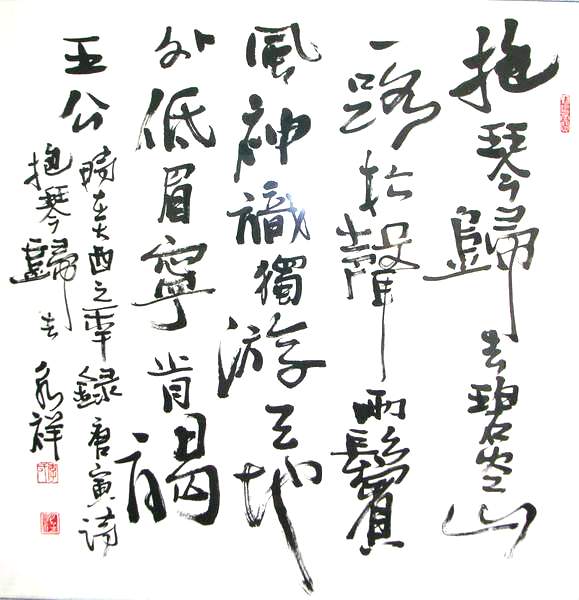 抱琴歸去碧空山
一路松聲兩鬢
風神識獨游天地
外低眉寧肯謁
王公
時在酉之年錄唐寅诗
抱琴歸去 永祥